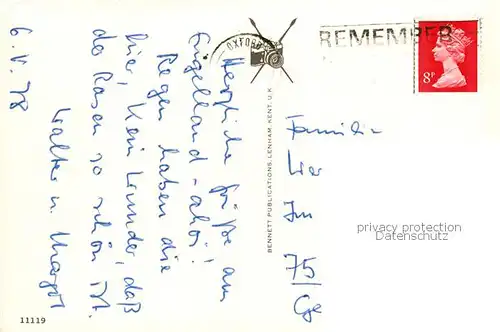 6. V. 78
Herzliche Grüße aus
England - also!
Regen haben die
hier, kein Wunder, daß
der Rasen so schön ist.
Walter u. Margot
OXFORD
REMEMBER
8P
BENNETT PUBLICATIONS, LENHAM, KENT. U.K.
Familie
Im
75/
privacy protection
Datenschutz
11119